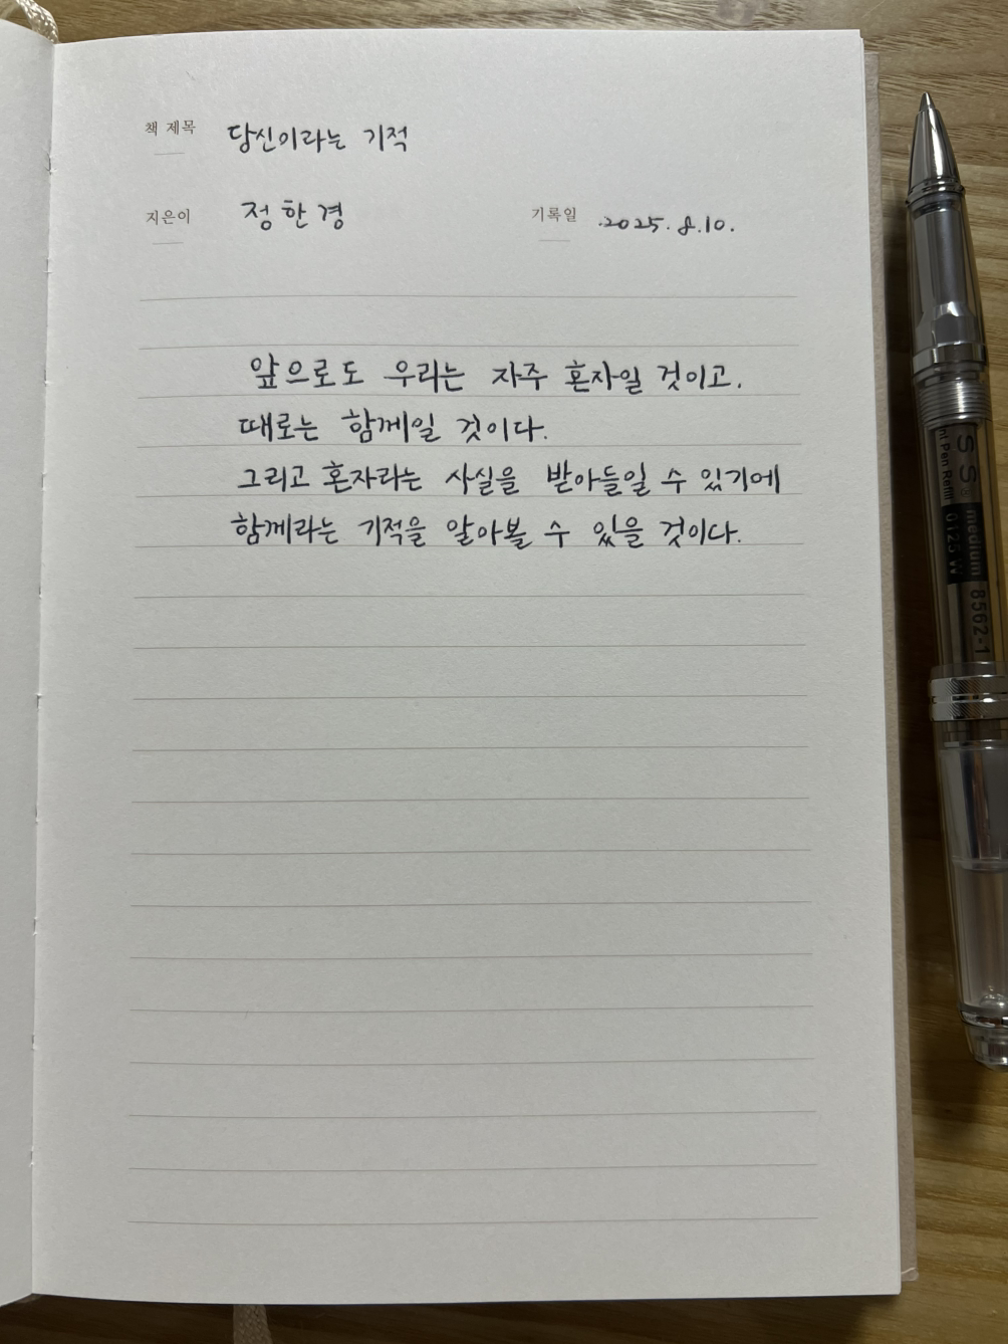 책 제목 당신이라는 기적
지은이 정한경 기록일 2025. 8. 10.
앞으로도 우리는 자주 혼자일 것이고,
때로는 함께일 것이다.
그리고 혼자라는 사실을 받아들일 수 있기에
함께라는 기적을 알아볼 수 있을 것이다.
SS®
medium 8562-1
0125 W